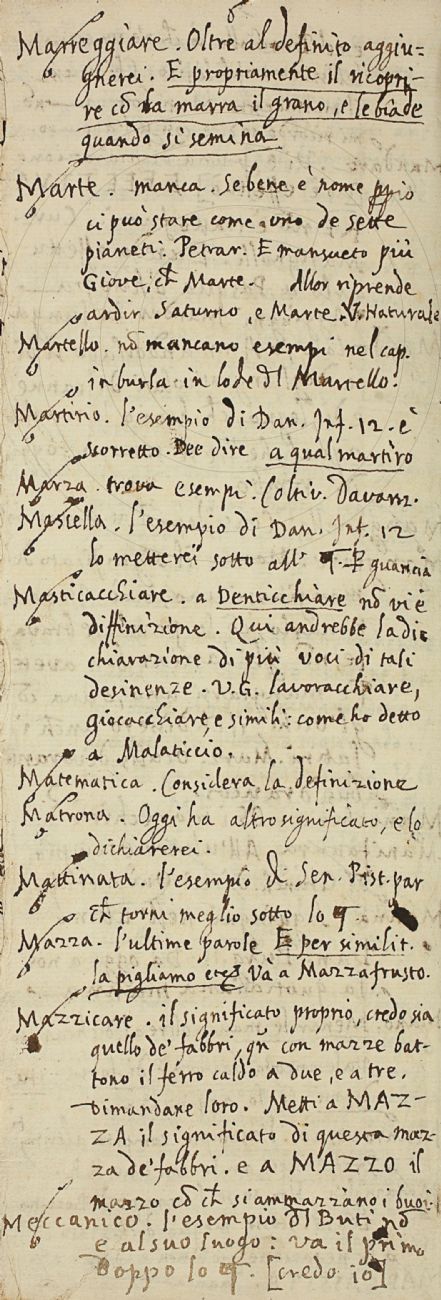 Marreggiare. Oltre al definito aggiu=
gnerei. E propriamente il ricopri-
re cō la marra il grano, e le biade
quando si semina
Marte. manca. Sebene è nome ꝓprio
ci può stare come uno de sette
pianeti. Petrar. E mansueto più
Giove, ch̄ Marte. Allor riprende
ardir Saturno, e Marte. V. Naturale
Martello. nō mancano esempi nel cap.
in burla in lode dl Martello.
Martirio. l'esempio di Dan. Inf. 12. è
scorretto. Dee dire a qual martiro
Marza. trova esempi. Coltiv. Davanz.
Mascella. l'esempio di Dan. Inf. 12
lo metterei sotto all' guancia
Masticacchiare. a Denticchiare nō vi è
diffinizione. Qui andrebbe la di=
chiarazione di più voci di tali
desinenze. V.G. lavoracchiare,
giocacchiare, e simili: come ho detto
a Malaticcio.
Matematica. Considera la definizione
Matrona. Oggi ha altro significato, e lo
dichiarerei.
Mattinata. l'esempio di Sen. Pist. par
ch̄ torni meglio sotto lo
Mazza. l'ultime parole E per similit.
la pigliamo etc. và a Mazzafrusto.
Mazzicare. il significato proprio, credo sia
quello de' fabbri, qn̄ con mazze bat-
tono il ferro caldo a due, e a tre.
Dimandane loro. Metti a MAZ-
ZA il significato di questa maz-
za de' fabbri. e a MAZZO il
mazzo cō ch̄ si ammazzano i buoi.
Meccanico. l'esempio dl Buti nō
è al suo luogo: va il primo
doppo lo [credo io]